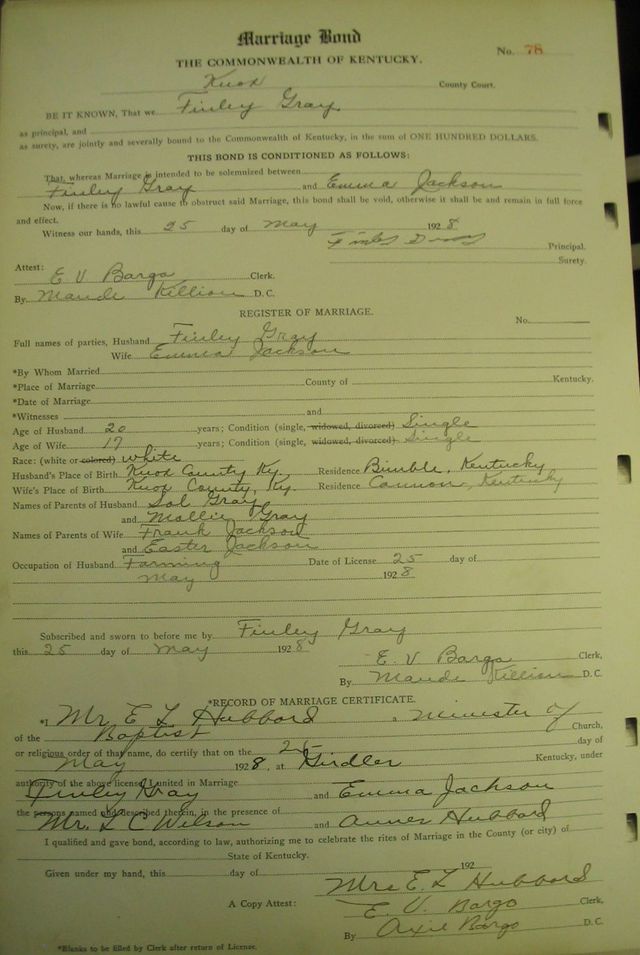 Marriage Bond
THE COMMONWEALTH OF KENTUCKY.
No. 78
Knox County Court.
BE IT KNOWN, That we Finley Gray
as principal, and
as surety, are jointly and severally bound to the Commonwealth of Kentucky, in the sum of ONE HUNDRED DOLLARS.
THIS BOND IS CONDITIONED AS FOLLOWS:
That, whereas Marriage is intended to be solemnized between
Finley Gray and Emma Jackson
Now, if there is no lawful cause to obstruct said Marriage, this bond shall be void, otherwise it shall be and remain in full force
and effect.
Witness our hands, this 25 day of May 1928
Principal.
Surety.
Attest:
E V Bargo Clerk.
By Maude Killion D. C.
REGISTER OF MARRIAGE.
No.
Full names of parties, Husband Finley Gray
Wife Emma Jackson
*By Whom Married
*Place of Marriage County of Kentucky.
*Date of Marriage
*Witnesses and
Age of Husband 20 years; Condition (single, widowed, divorced) Single
Age of Wife 17 years; Condition (single, widowed, divorced) Single
Race: (white or colored) white
Husband's Place of Birth Knox County Ky. Residence Bimble, Kentucky
Wife's Place of Birth Knox County, Ky. Residence Cannon, Kentucky
Names of Parents of Husband Sol Gray
and Mollie Gray
Names of Parents of Wife Frank Jackson
and Easter Jackson
Occupation of Husband Farming Date of License 25 day of
May 1928
Subscribed and sworn to before me by Finley Gray
this 25 day of May 1928
E. V Bargo Clerk,
By Maude Killion D. C.
*RECORD OF MARRIAGE CERTIFICATE.
*I Mr. E L Hubbard, a minister of
of the Baptist Church,
or religious order of that name, do certify that on the day of
May 1928, at Girdler Kentucky, under
authority of the above license, I united in Marriage
Finley Gray and Emma Jackson
the persons named and described therein, in the presence of
Mr. L C Wilson and Anner Hubbard
I qualified and gave bond, according to law, authorizing me to celebrate the rites of Marriage in the County (or city) of
State of Kentucky.
Given under my hand, this day of 192
Mrs E. L Hubbard
A Copy Attest: E. V. Bargo Clerk,
By Axie Bargo D. C.
*Blanks to be filled by Clerk after return of License.